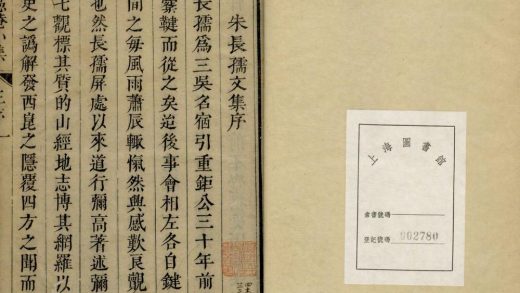 朱長孺文集序
長孺爲三吳名宿引重鉅公三十年前
橐鞬而從之矣迨後事會相左各自鍵
間之每風雨蕭辰輒愾然興感歎良覿
也然長孺屏處以來道行彌高著述彌
七觀標其質的山經地志博其網羅以
史之譌解發西崑之隱覆四方之聞而
小集
序
一
上海圖書館
索書號碼
登記號碼 002780